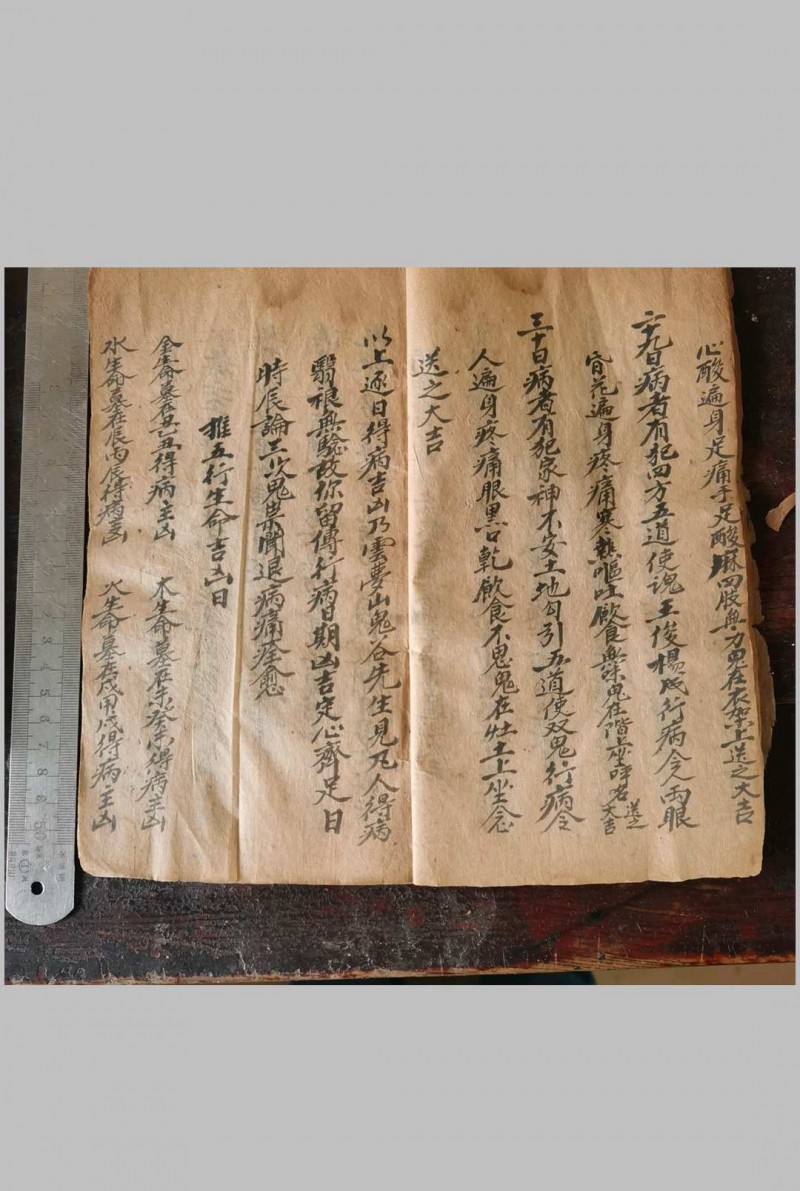 心酸遍身足痛手足酸麻四肢無力鬼在衣架上送之大吉
二十九日病者有犯四方五道使魂王俊楊成行病令人兩眼
昏花遍身疼痛寒熱嘔吐飲食無味鬼在階上坐呼名送之大吉
三十日病者有犯家神不安土地勾引五道使双鬼行病令
人遍身疼痛眼黑口乾飲食不思鬼在灶土上坐念
送之大吉
以上逐日得病吉凶乃雲夢山鬼谷先生見凡人得病
無驗故你留傳行病日期凶吉定心齊足日
時辰論三次鬼祟聞退病痛痊愈
推五行生命吉凶日
金生命墓在丑乙丑得病主凶 木生命墓在未癸未得病主凶
水生命墓在辰丙辰得病主凶 火生命墓在戌甲戌得病主凶